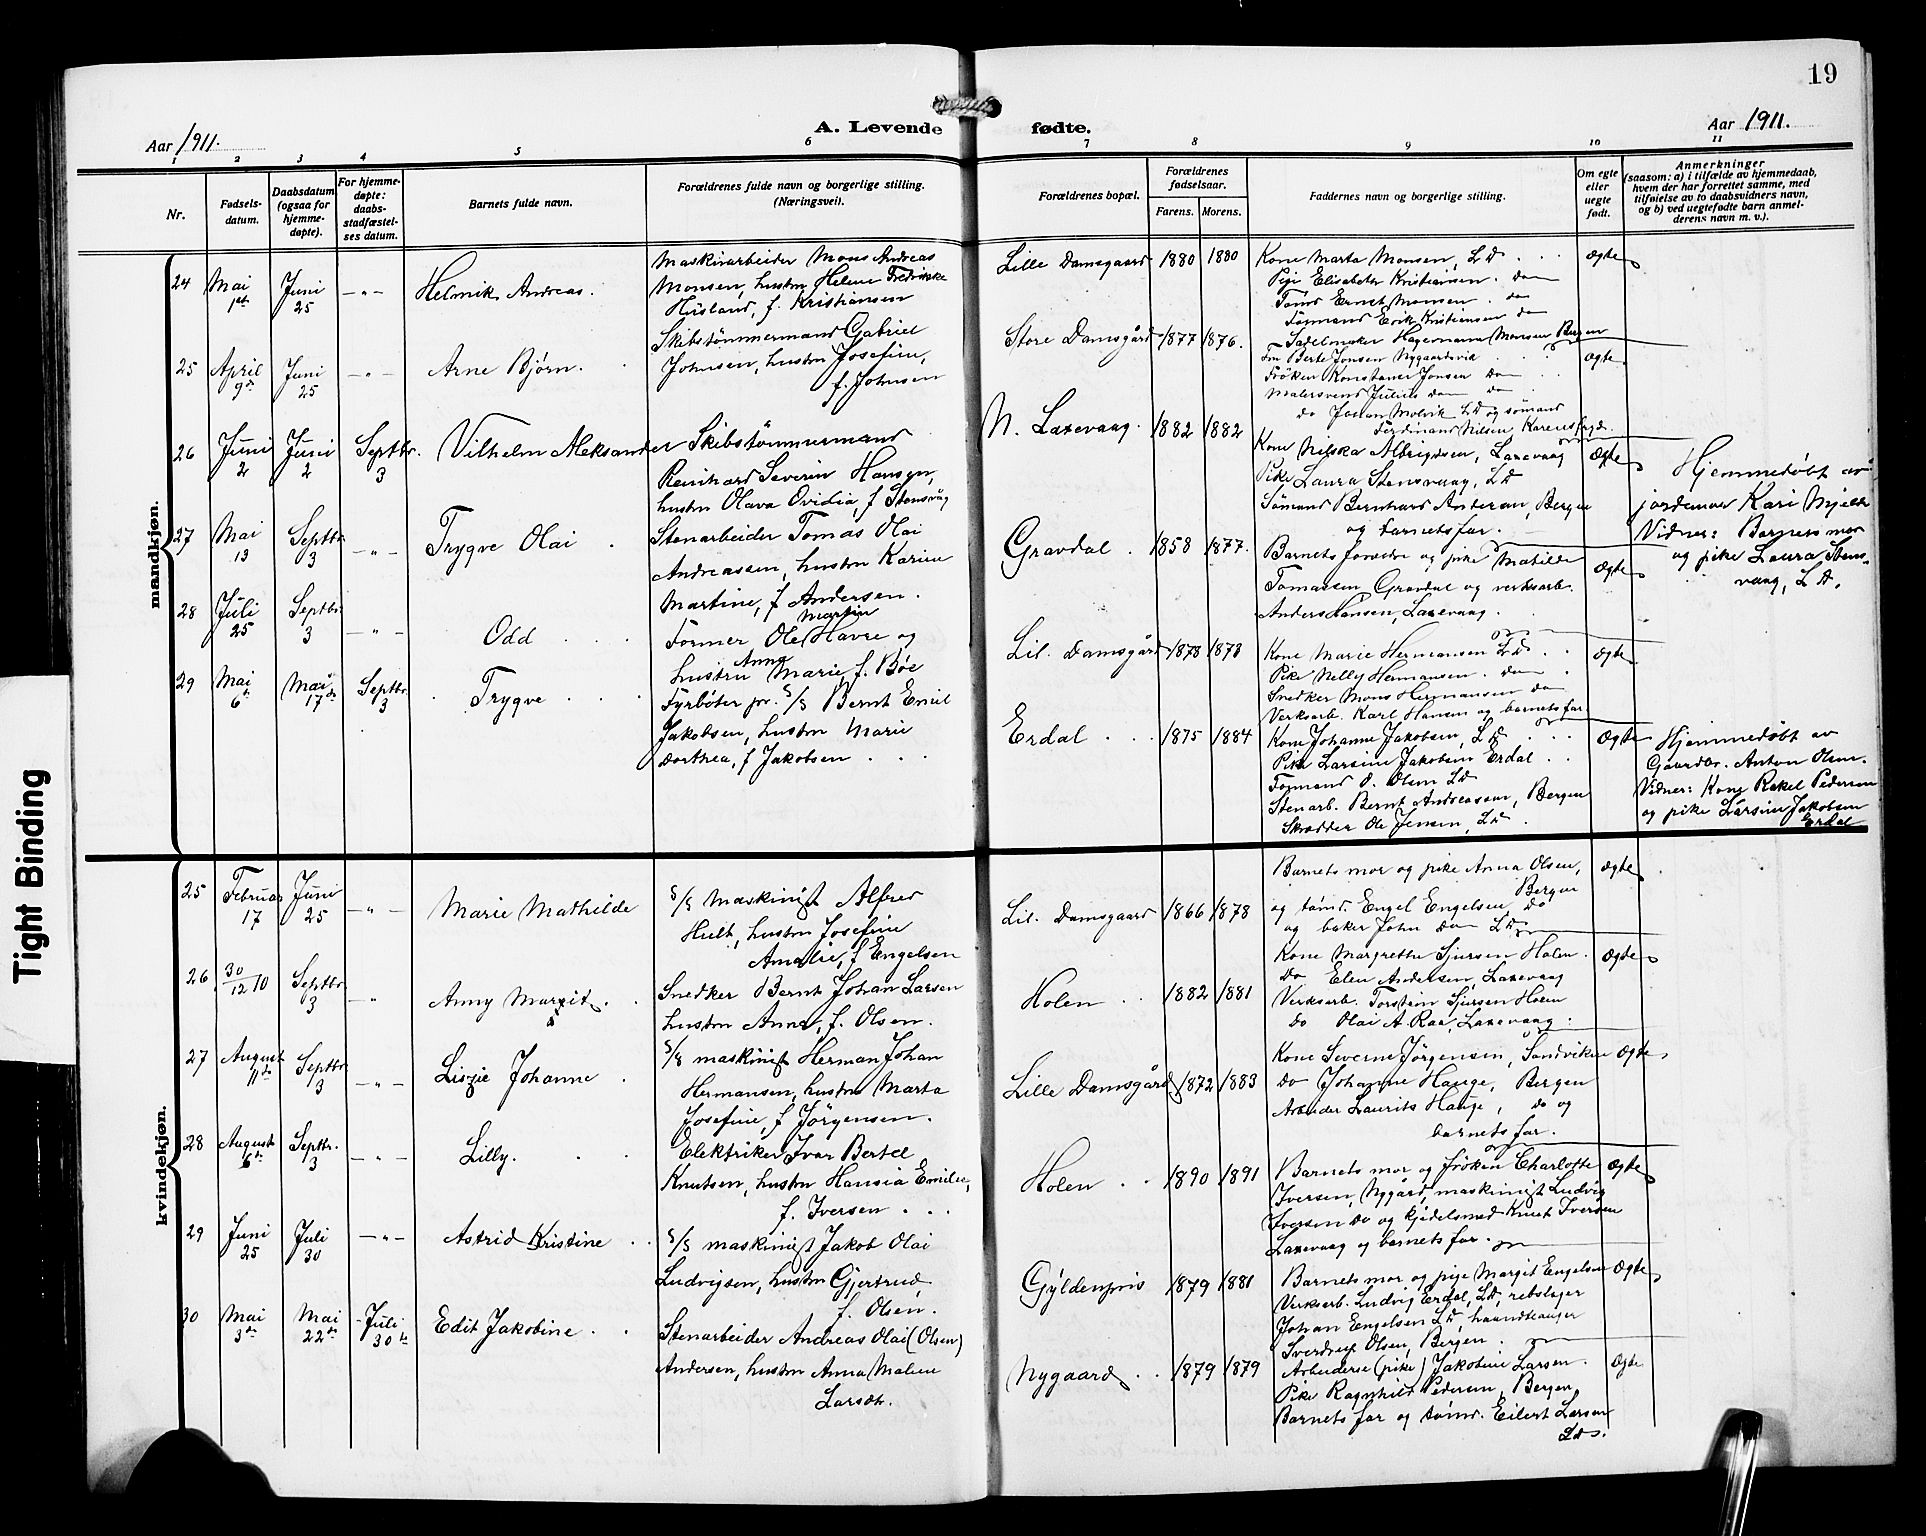 19
A. Levende fødte.
Aar 1911.
Aar 1911.
1 2 3 4 5 6 7 8 9 10 11
Nr.
Fødsels-
datum.
Daabsdatum
(ogsaa for
hjemme-
døpte).
For hjemme-
døpte:
daabs-
stadfæstel-
ses datum.
Barnets fulde navn.
Forældrenes fulde navn og borgerlige stilling.
(Næringsvei).
Forældrenes bopæl.
Forældrenes
fødselsaar.
Farens. Morens.
Faddernes navn og borgerlige stilling.
Om egte
eller
uegte
født.
Anmerkninger
(saasom: a) i tilfælde av hjemmedaab,
hvem der har forrettet samme, med
tilføielse av to daabsvidners navn,
og b) ved uegtefødte barn anmel-
derens navn m. v.).
mandkjøn.
24 Mai 1st Juni 25 —"— Helmik Andreas.
Maskinarbeider Mons Andreas
Monsen, hustru Helene Fredrikke
Husland, f. Kristiansen
Lille Damsgaard 1880 1880
Kone Marta Monsen, LD
Pige Elisabeth Kristiansen. do
Tømd Ernst Monsen. do
Formand Erik Kristiansen do
Sadelmaker Hagemann Monsen Bergen
Ægte
25 April 9de Juni 25 —"— Arne Bjørn.
Skibstømmermand Gabriel
Johnsen, hustru Josefine,
f. Johnsen
Store Damsgård 1877 1876.
Fru Berte Jonsen Nygaardsvik
Frøken Konstance Jonsen do
Malersvend Julius do do
do Johan Molvik LD og sømand
Ferdinand Nilsen Karensfryd.
Ægte
26 Juni 2 Juni 2 Septbr. 3 Vilhelm Aleksander
Skibstømmermand
Reinhard Severin Hansen,
hustru Olava Ovidia, f Stensvåg
N. Laxevaag. 1882 1882
Kone Nilska Albrigtsen, Laxevaag
Pike Laura Stensvaag, LD
Sømand Bernhard Andersen, Bergen
og barnets far.
Ægte
Hjemmedøbt av
jordemor Kari Mjelde
Vidner: Barnets mor
og pike Laura Stens-
vaag, LD.
27 Mai 13 Septbr 3 —"— Trygve Olai
Stenarbeider Tomas Olai
Andreassen, hustru Karine
Martine, f Andersen.
Gravdal. 1858 1877.
Barnets forældre og pike Matilde
Tomassen Gravdal og verksarb.
Anders Hansen, Laxevaag.
Ægte
28 Juli 25 Septbr 3 —"— Odd
Former Ole Martin Havre og
hustru Anna Marie, f. Bøe
Lil. Damsgård 1878 1878
Kone Marie Hermansen LD
Pike Nelly Hermansen. do
Snedker Mons Hermansen do
Verksarb. Karl Hansen og barnets far.
Ægte
29 Mai 6te Mai 17de Septbr. 3 Trygve
Fyrbøter pr. S/S Bernt Emil
Jakobsen, hustru Marie
Dorthea, f Jakobsen
Erdal 1875 1884
Kone Johanne Jakobsen, LD
Pike Larsine Jakobsen Erdal
Formand O. Olsen LD
Stenarb. Bernt Andreassen, Bergen
Skrædder Ole Jensen, LD.
Ægte
Hjemmedøbt av
Gaardbr. Anton Olsen.
Vidner: Kone Rakel Pedersen
og pike Larsine Jakobsen
Erdal
kvindekjøn.
25 Februar 17 Juni 25 —"— Marie Mathilde
S/S Maskinist Alfred
Hult, hustru Josefine
Amalie, f Engelsen
Lil. Damsgaard 1866 1878
Barnets mor og pike Anna Olsen,
Bergen
og tømd. Engel Engelsen do
og baker John do LD
Ægte
26 30/12 10 Septbr. 3 —"— Anny Margit
Snedker Bernt Johan Larsen
hustru Anna, f. Olsen.
Holen 1882 1881
Kone Margrethe Sjursen Holen.
do Elen Andersen, Laxevaag
Verksarb. Torstein Sjursen Holen
do Olai A. Raa, Laxevaag.
Ægte
27 August 11te Septbr 3 —"— Lizzie Johanne
S/S maskinist Herman Johan
Hermansen, hustru Marta
Josefine, f Jörgensen.
Lille Damsgård 1872 1883
Kone Severine Jörgensen, Sandviken
do Johanne Hauge, Bergen
Arbeider Laurits Hauge, do og
barnets far.
Ægte
28 August 6te Septbr. 3 —"— Lilly.
Elektriker Ivar Bertel
Knutsen, hustru Hansia Emilie,
f. Iversen
Holen 1890 1891
Barnets mor og frøken Charlotte
Iversen, Nygård, maskinist Ludvig
Iversen do og kjedelsmed Knut Iversen
Laxevaag og barnets far.
Ægte
29 Juni 25 Juli 30 —"— Astrid Kristine
S/S maskinist Jakob Olai
Ludvigsen, hustru Gjertrud,
f. Olsen.
Gyldenpris 1879 1881
Barnets mor og pige Margit Engelsen
Verksarb. Ludvig Erdal, LD, rebslager
Johan Engelsen LD, haandlanger
Sverdrup Olsen, Bergen.
Ægte
30 Mai 3de Mai 22de Juli 30te Edit Jakobine
Stenarbeider Andreas Olai (Olsen)
Andersen, hustru Anna Malene
Larsdtr.
Nygaard 1879 1879
Arbeiderske (pike) Jakobine Larsen.
Pike Ragnhild Pedersen, Bergen,
Barnets far og tømd. Eilert Larsen
LD.
Ægte
Tight Binding